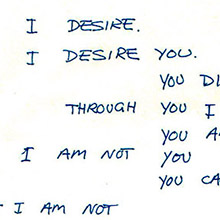 I DESIRE.
I DESIRE YOU.
YOU
THROUGH YOU I
YOU
I AM NOT YOU
YOU
I AM NOT